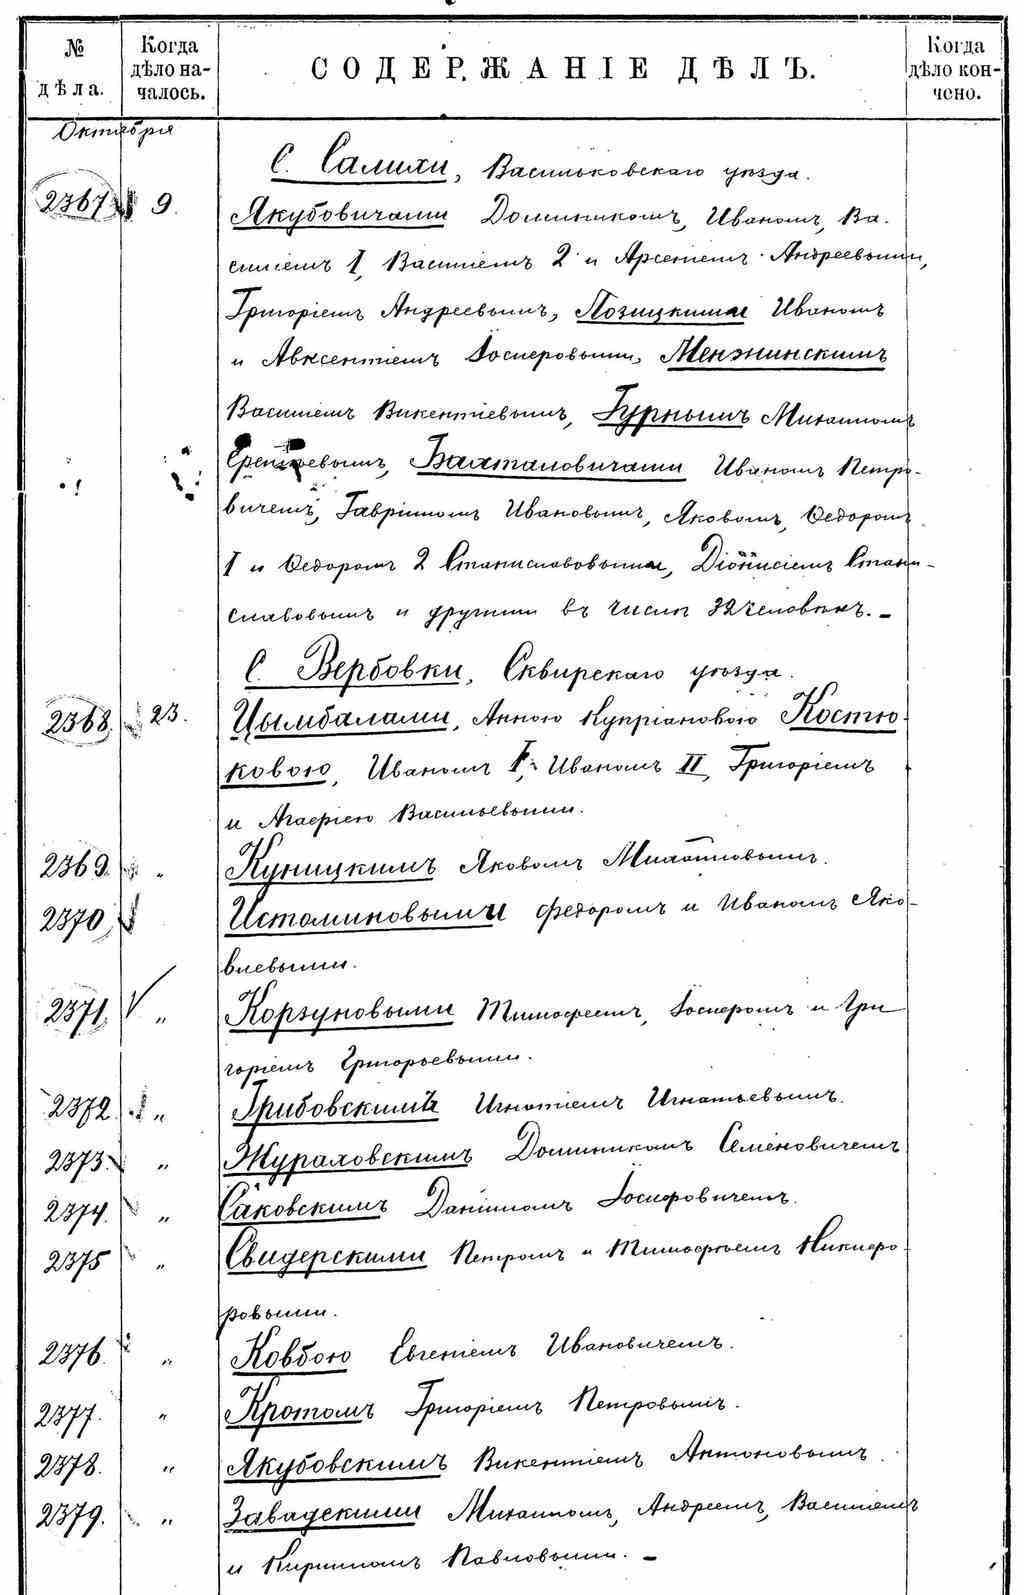 № дѣла. Когда дѣло началось. СОДЕРЖАНІЕ ДѢЛЪ. Когда дѣло кончено.
Октября
С. Салихи, Васильковскаго уѣзда.
2367 9. Якубовичами Доминикомъ, Иваномъ, Ва-
силіемъ 1, Василіемъ 2 и Арсеніемъ Андреевыми,
Григоріемъ Андреевымъ, Лозицкими Иваномъ
и Авксентіемъ Іосифовыми, Мензинскимъ
Василіемъ Викентіевымъ, Гурнымъ Михаиломъ
Бахтановичами Иваномъ Петро-
вичемъ, Гавріиломъ Ивановымъ, Яковомъ, Ѳедоромъ
I и Ѳедоромъ 2 Станиславовыми, Діонисіемъ Стани-
славовымъ и другими въ числѣ 32 человѣкъ.
С. Вербовки, Сквирскаго уѣзда.
2368. 23. Цымбалами, Анною Купріановою Костю-
ковою, Иваномъ I, Иваномъ II, Григоріемъ
и Агафіею Васильевыми.
2369. „ Куницкимъ Яковомъ Михайловымъ.
2370 Истоминовыми Федоромъ и Иваномъ Яко-
влевыми.
2371. „ Корзуновыми Тимофеемъ, Іосифомъ и Гри
горіемъ Григорьевыми.
2372. „ Грибовскимъ Игнатіемъ Игнатьевымъ.
2373 „ Жураховскимъ Доминикомъ Семеновичемъ
2374. „ Саковскимъ Даніиломъ Іосифовичемъ.
2375 „ Свидерскими Петромъ и Тимофѣемъ Никифо-
ровыми.
2376. „ Ковбою Евгеніемъ Ивановичемъ.
2377. „ Кротомъ Григоріемъ Петровымъ.
2378. „ Якубовскимъ Викентіемъ Антоновымъ.
2379. „ Завадскими Михаиломъ, Андреемъ, Василіемъ
и Кириломъ Павловыми.